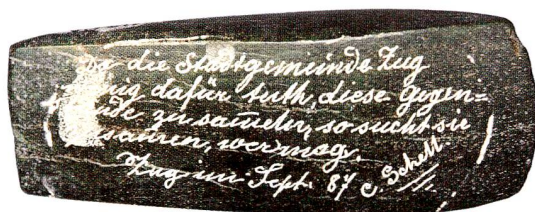 die Stadtgemeinde Zug
dafür tuth, diese Gegen=
zu sameln, so sucht sie
wer mag.
Zug im Sept. 87 C. Schell